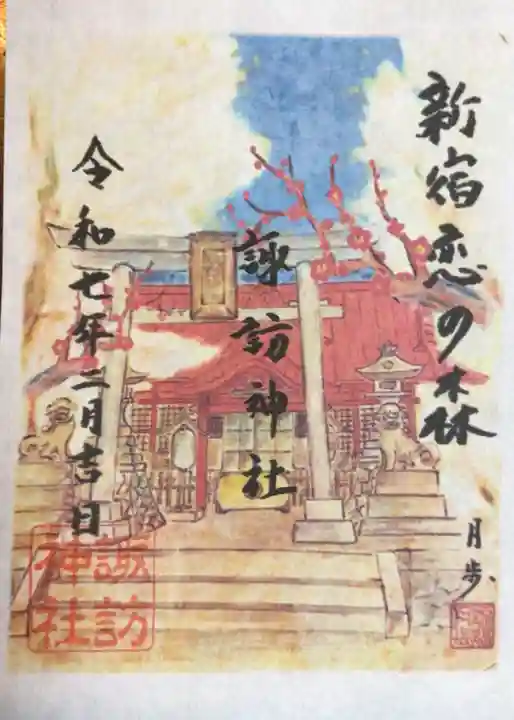 新宿恋の森
諏訪神社
令和七年二月吉日
月歩
諏訪
神社